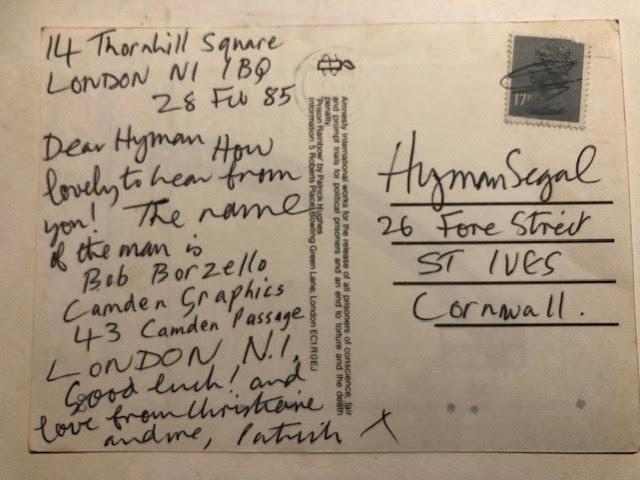 14 Thornhill Square
LONDON N1 1BQ
28 Feb 85
Dear Hyman How
lovely to hear from
you! The name
of the man is
Bob Borzello
Camden Graphics
43 Camden Passage
LONDON N.1,
Good luck! and
love from Christiane
and me, Patrick X
Amnesty International works for the release of all prisoners of conscience, fair
and prompt trials for political prisoners and an end to torture and the death
penalty.
'Prison Rainbow' by Patrick Hughes
Information: 5 Roberts Place, Bowling Green Lane, London EC1R 0EJ
17P
Hyman Segal
26 Fore Street
ST IVES
Cornwall.